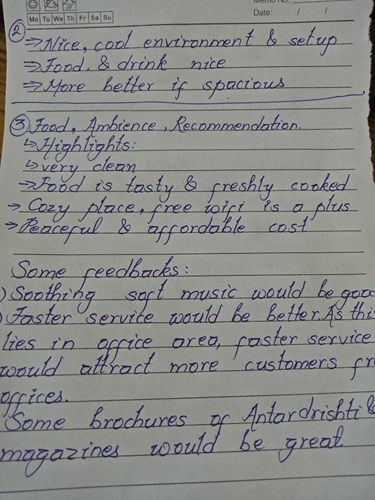 Memo No.
Mo Tu We Th Fr Sa Su
Date: / /
② ⇒ Nice, cool environment & setup
⇒ Food & drink nice
⇒ More better if spacious
③ Food, Ambience, Recommendation.
↳ Highlights:
↳ very clean
⇒ Food is tasty & freshly cooked
→ Cozy place, free wifi is a plus
→ Peaceful & affordable cost
Some feedbacks:
) Soothing soft music would be good
) Faster service would be better. As this
lies in office area, faster service
would attract more customers fr
offices.
Some brochures of Antardrishti &
magazines would be great